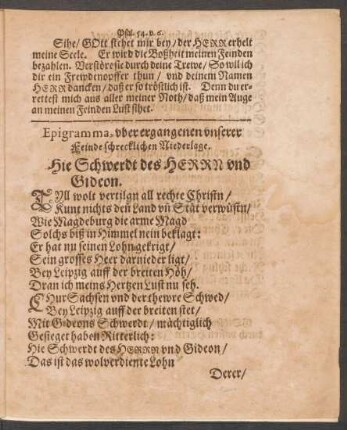 Psal. 54. v. 6.
Sihe / GOtt stehet mir bey / der HERR erhelt
meine Seele. Er wird die Boßheit meinen Feinden
bezahlen. Verstöre sie durch deine Trewe / So wil ich
dir ein Frewdenopffer thun / vnd deinem Namen
HERR dancken / daß er so tröstlich ist. Denn du er-
rettest mich aus aller meiner Noth / daß mein Auge
an meinen Feinden Lust sihet.
Epigramma, vber ergangenen vnserer
Feinde schrecklichen Niederlage.
Hie Schwerdt des HERRN vnd
Gideon.
TYll wolt vertilgn all rechte Christn /
Kunt nichts deñ Land vñ Stät verwüstn /
Wie Magdeburg die arme Magd
Solchs biß in Himmel nein beklagt:
Er hat nu seinen Lohn gekrigt /
Sein grosses Heer darnieder ligt /
Bey Leipzig auff der breiten Höh /
Dran ich meins Hertzen Lust nu seh.
CHur Sachsen vnd der thewre Schwed /
Bey Leipzig auff der breiten stet /
Mit Gideons Schwerdt / mächtiglich
Gesieget haben Ritterlich:
Hie Schwerdt des HERRN vnd Gideon /
Das ist das wolverdiente Lohn
Derer /